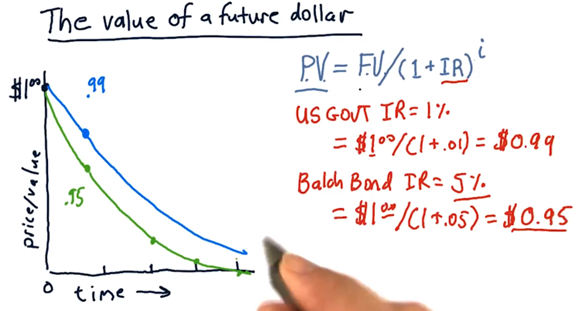 The value of a future dollar
$1⁰⁰
.99
.95
price/value
0 time →
PV = FV/(1+IR)ⁱ
US GOVT IR = 1%
= $1⁰⁰/(1+.01) = $0.99
Balch Bond IR = 5%
= $1⁰⁰/(1+.05) = $0.95